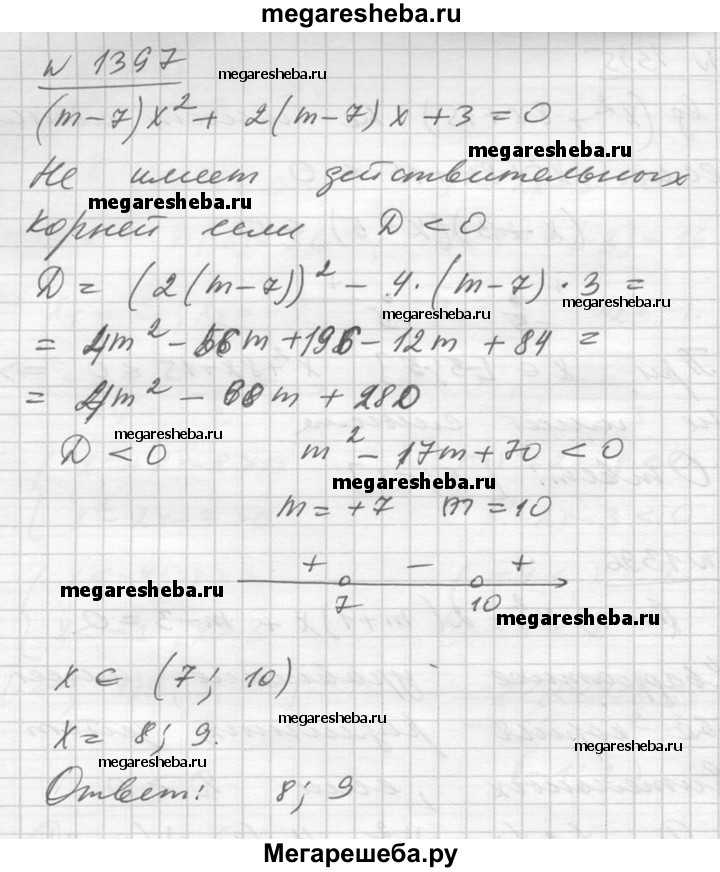 megaresheba.ru
N 1397
megaresheba.ru
(m-7)x² + 2(m-7)x + 3 = 0
megaresheba.ru
Не имеет действительных
megaresheba.ru
корней если D < 0
D = (2(m-7))² - 4·(m-7)·3 =
megaresheba.ru
megaresheba.ru
= 4m² - 56m + 196 - 12m + 84 =
= 4m² - 68m + 280
megaresheba.ru
D < 0 m² - 17m + 70 < 0
megaresheba.ru
m = +7 m = 10
+ - +
megaresheba.ru
7 10
megaresheba.ru
x ∈ (7; 10)
megaresheba.ru
x = 8; 9.
megaresheba.ru
megaresheba.ru
Ответ: 8; 9
Мегарешеба.ру